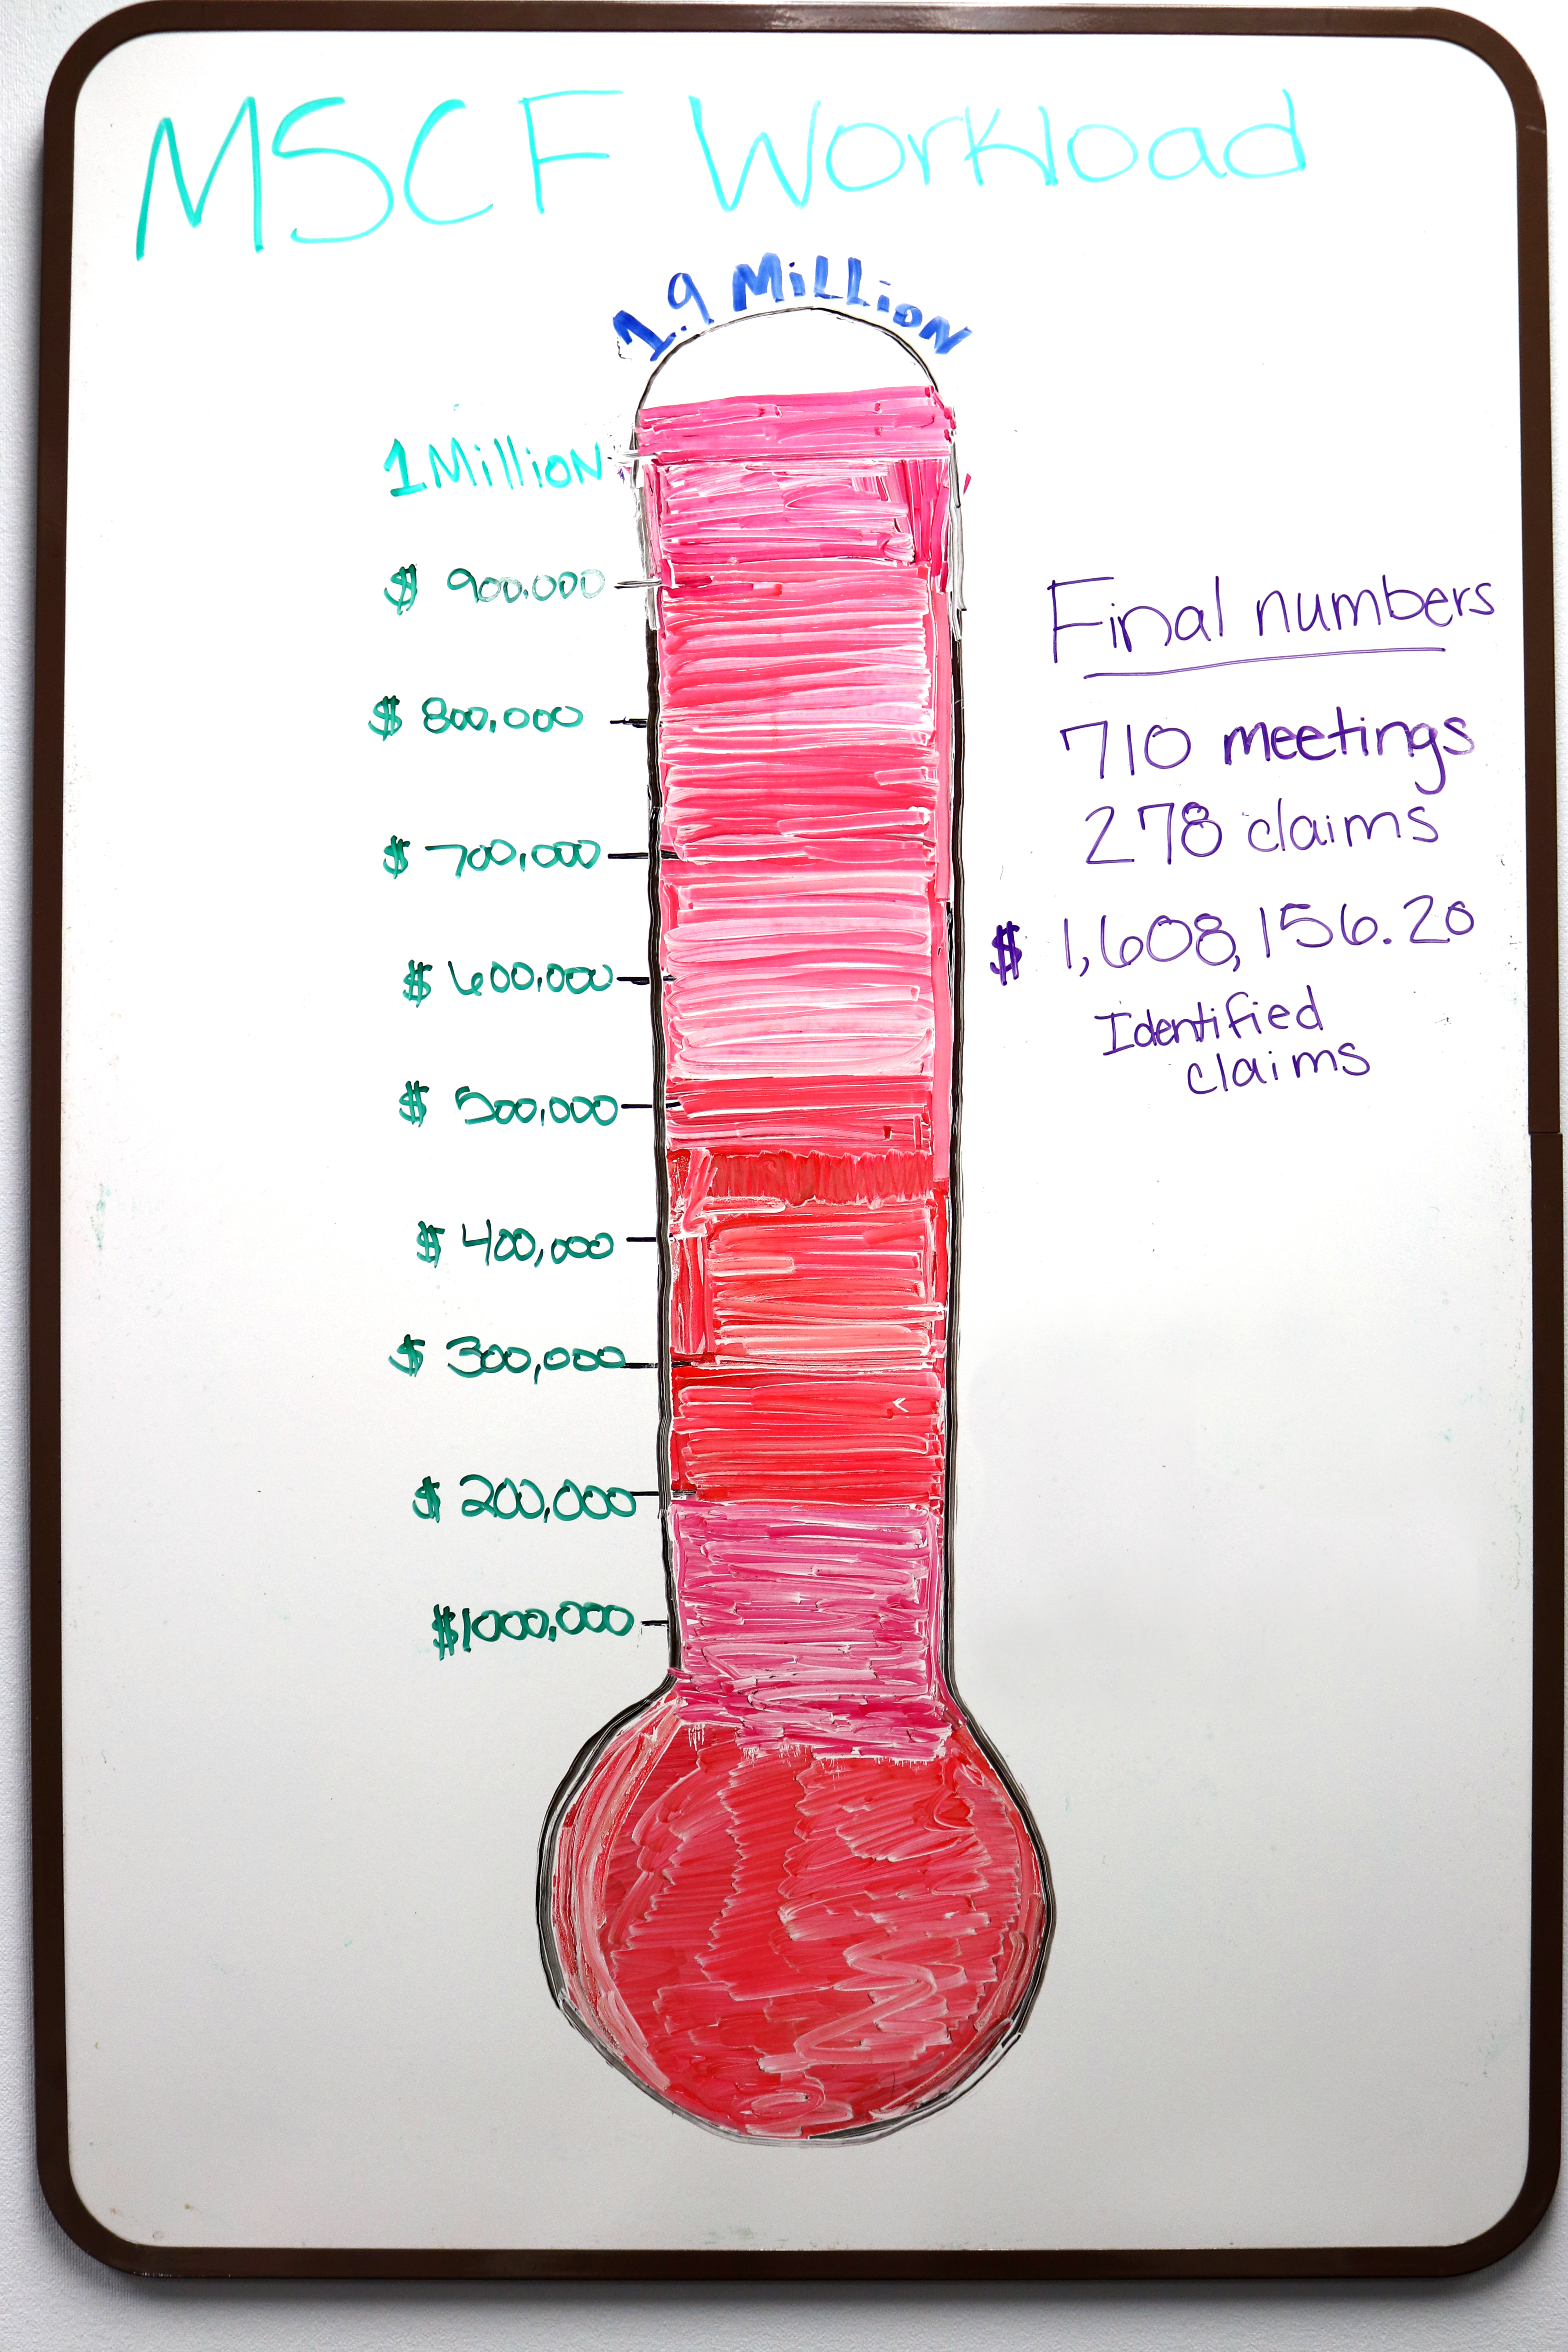 MSCF Workload
1.9 Million
1 Million
$ 900,000
$ 800,000
$ 700,000
$ 600,000
$ 500,000
$ 400,000
$ 300,000
$ 200,000
$1000,000
Final numbers
710 meetings
278 claims
$ 1,608,156.20
Identified
claims